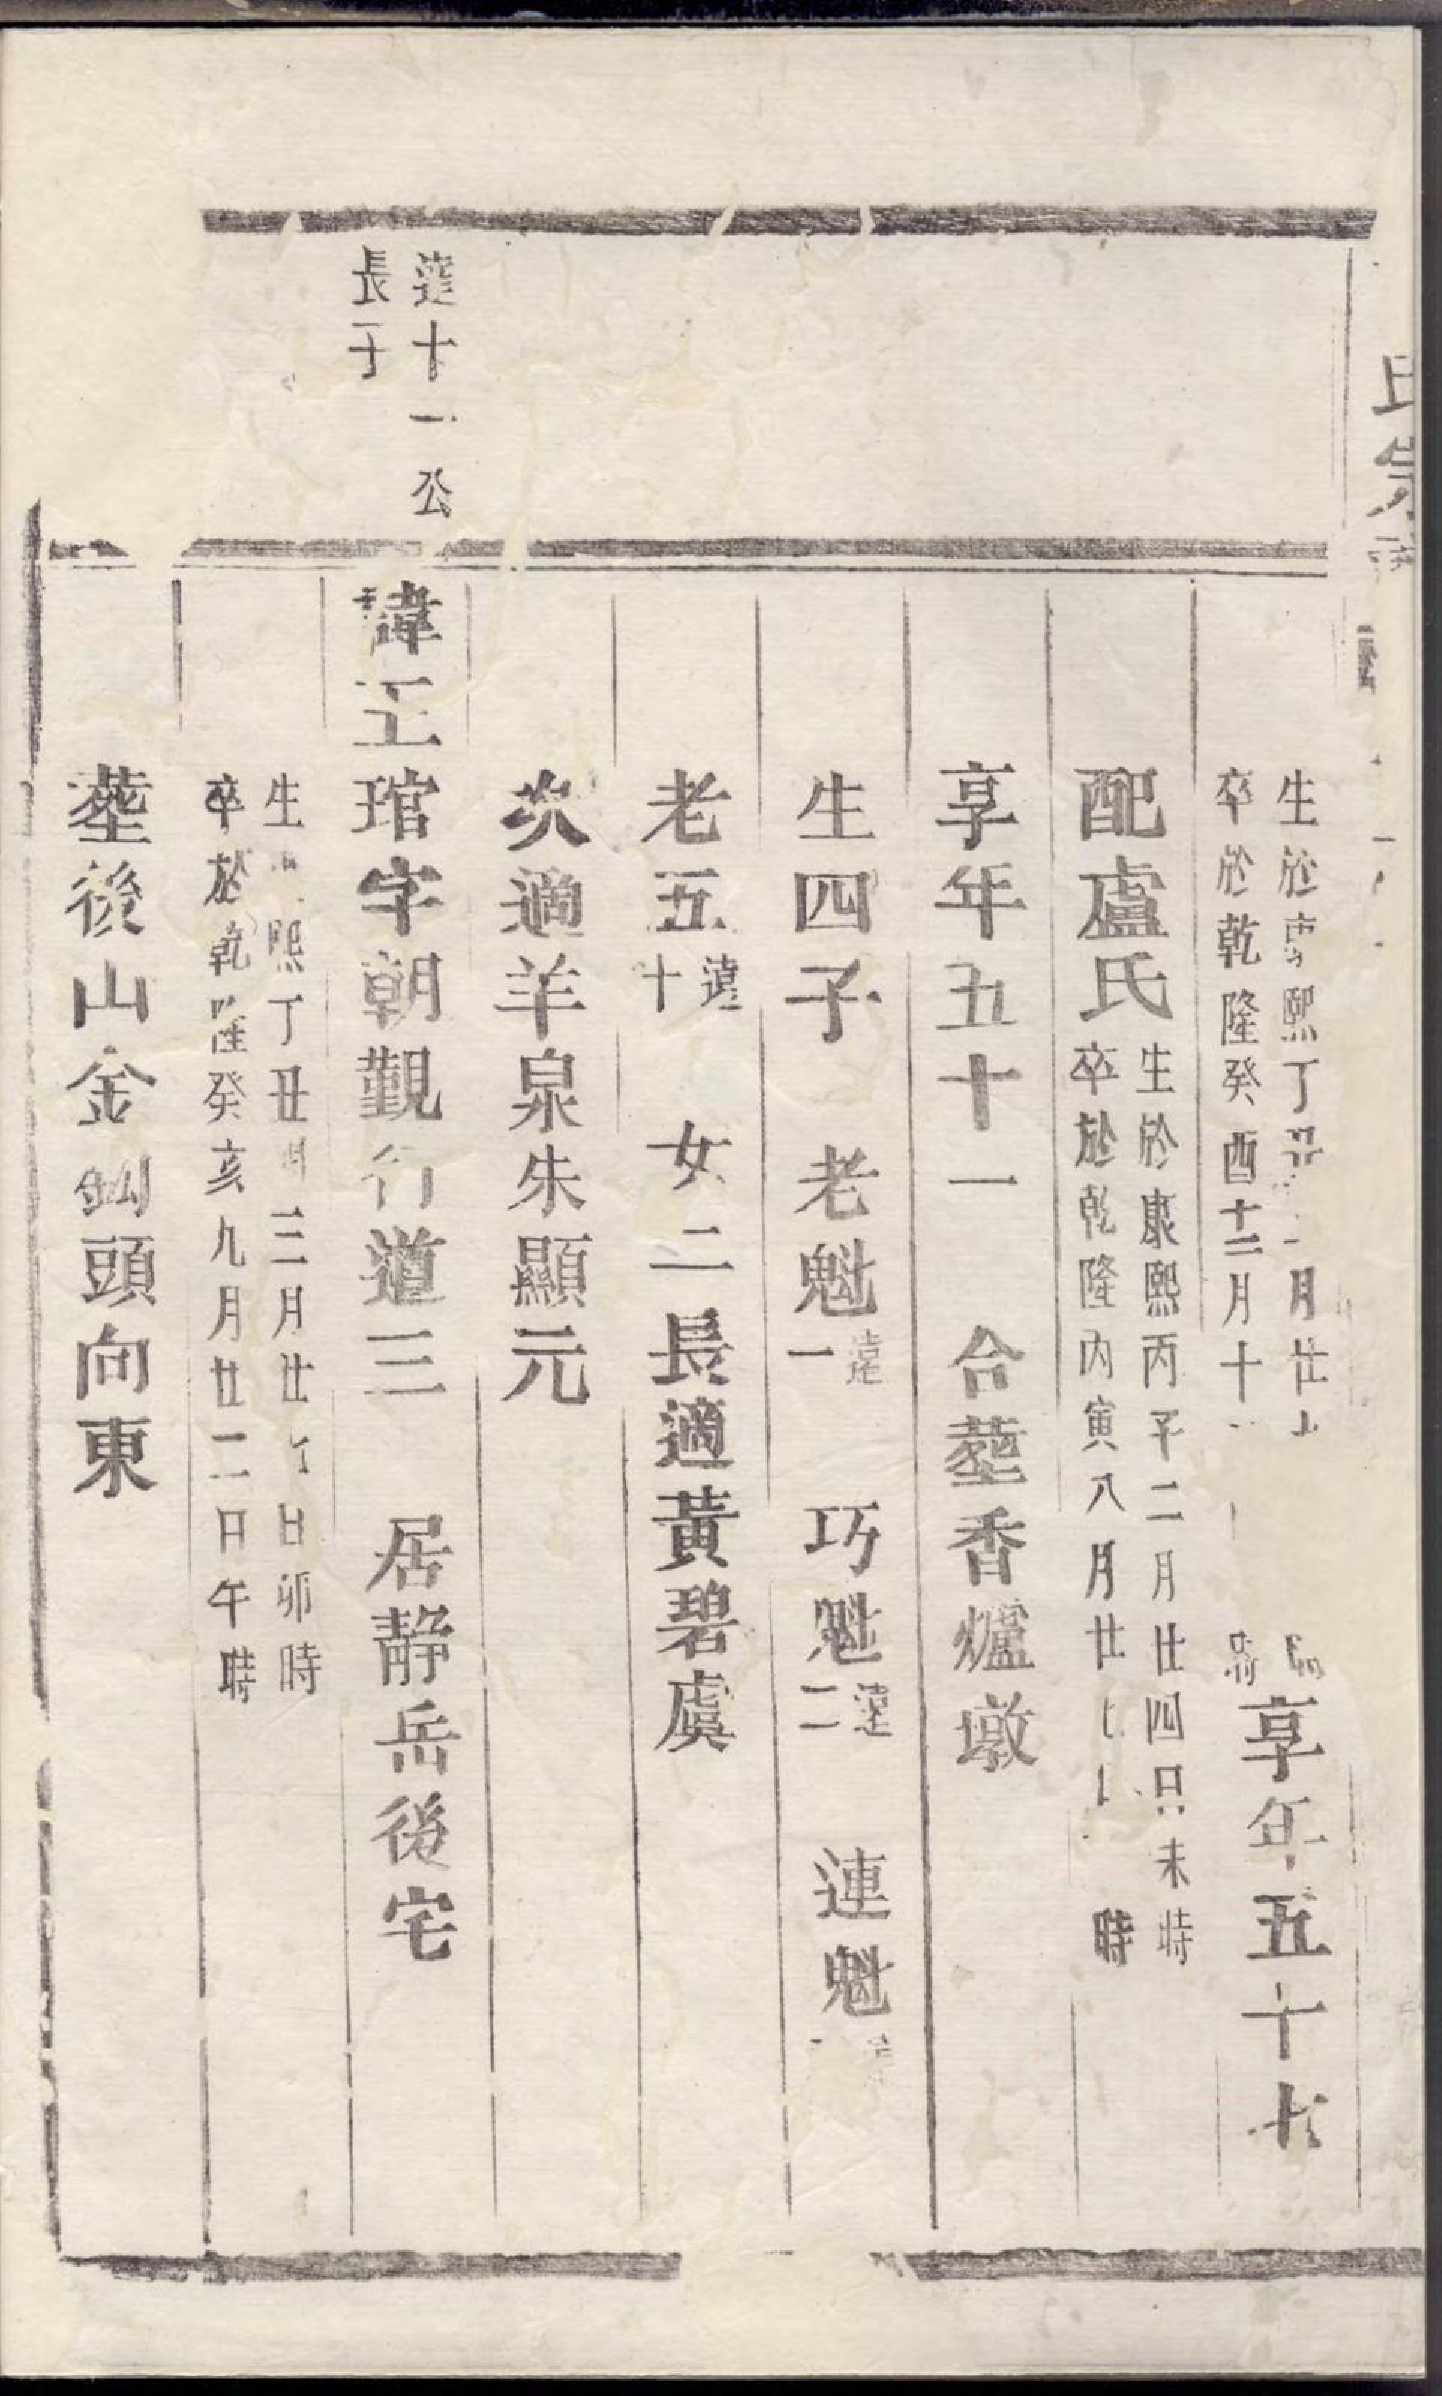 氏宗
生於康熙丁丑 月廿
卒於乾隆癸酉十二月十
時
時
享年五十七
配盧氏
生於康熙丙子二月廿四日未時
卒於乾隆丙寅八月廿 時
享年五十一 合塟香爐墩
生四子 老魁 遠一 巧魁 遠二 連魁
老五 遠十 女二長適黃碧虞
次適羊泉朱顯元
達十一公
長子
諱玉琯字朝觀行道三 居靜岳後宅
生 熙丁丑閏三月廿 日卯時
卒於乾隆癸亥九月廿二日午時
塟後山金鈎頭向東